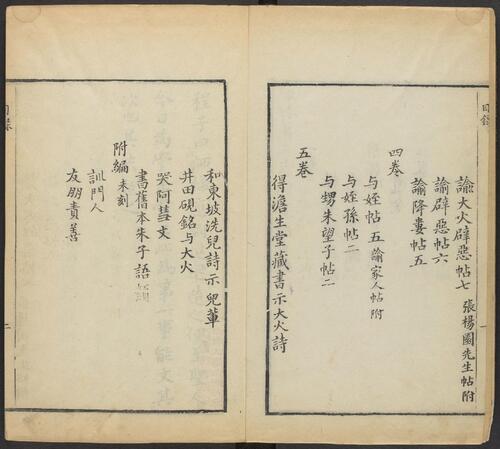 目錄
諭大火辟惡帖七 張楊園先生帖附
諭辟惡帖六
諭降婁帖五
四卷
与姪帖五 諭家人帖附
与姪孫帖二
与甥朱望子帖二
五卷
得澹生堂藏書示大火詩
和東坡洗兒詩示兒輩
井田硯銘与大火
哭阿彗文
書舊本朱子語類
附編 未刻
訓門人
友朋責善
目錄
二